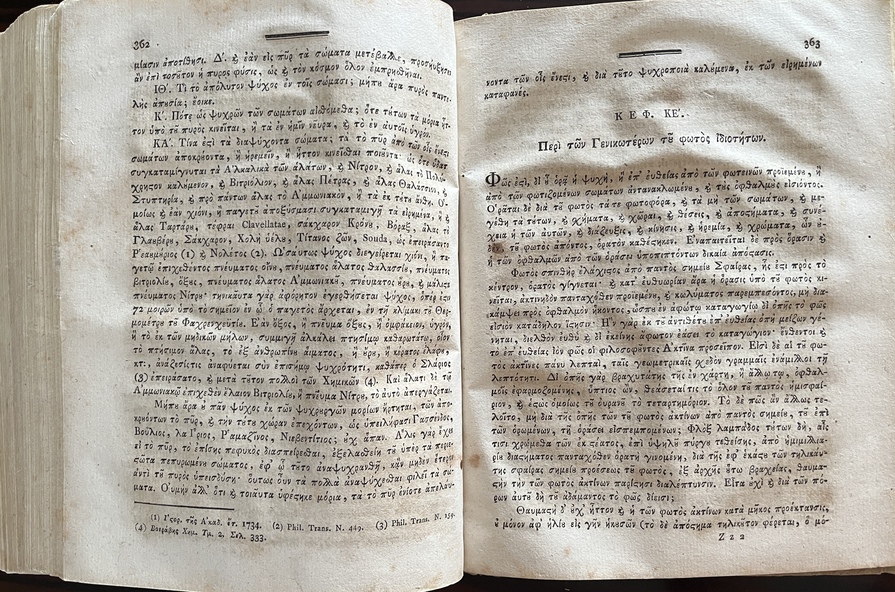 362
μίασιν ἀποτίθησι. Δ΄. ϗ ἐὰν εἰς πῦρ τὰ σώματα μετέβαλλε, προσήυξησεν
ἂν ἐπὶ τοσοῦτον ἡ πυρὸς φύσις, ὡς ϗ τὸν κόσμον ὅλον ἐμπρηθῆναι.
ΙΘ΄. Τί τὸ ἀπόλυτον ψύχος ἐν τοῖς σώμασι; μήπω ἄρα πυρὸς παντε-
λὴς ἀπουσία; ἔοικε.
Κ΄. Πότε ὡς ψυχρῶν τῶν σωμάτων αἰσθόμεθα; ὅτε τήτων τὰ μόρια ἧτ-
τον ὑπὸ τοῦ πυρὸς κινεῖται, ἢ τὰ ἐν ἡμῖν νεῦρα, ϗ τὸ ἐν αὐτοῖς ὑγρόν.
ΚΑ΄. Τίνα ἐςὶ τὰ διαψύχοντα σώματα; τὰ τὸ πῦρ ἀπὸ τῶν οἷς ἔνεςι
σωμάτων ἀποκρήοντα, ἢ ἠρεμεῖν, ἢ ἧττον κινεῖσθαι ποιοῦντα·
συγκαταμίγνυται τὰ Ἀλκαλικὰ τῶν ἁλάτων, ϗ Νίτρον, ϗ ἅλας τὸ Πολύ-
χρηςον καλούμενον, ϗ Βιτριόλιον, ϗ ἅλας Πέτρας, ϗ ἅλας Θαλάσσιον, ϗ
Στυπτηρία, ϗ πρὸ πάντων ἅλας τὸ Ἀμμωνιακὸν, ἢ τὰ ἐκ τούτου ἄνθη. Ὁ-
μοίως ϗ ἐὰν χιόνι, ἢ παγετῷ ἀποξύσμασι συγκαταμιγῇ τὰ εἰρημένα, ἢ ϗ
ἅλας Ταρτάρου, τεφραι Clavellatae, σάκχαρον Κρόνου, Βόραξ, ἅλας τὸ
Γλαυβέρου, Σάκχαρον, Χολὴ ὑέλου, Τίτανος ζῶν, Souda, ὡς ἐπειράσαντο
Ῥεαυμήριος (1) ϗ Νολέτος (2). Ὡσαύτως ψύχος διεγείρεται χιόνι, ἢ πα-
γετῷ ἐπιχεθέντος πνεύματος οἴνου, πνεύματος ἅλατος θαλασσίου, πνεύματος
βιτριολίου, ὄξους, πνεύματος ἅλατος Ἀμμωνιακοῦ, πνεύματος οὔρου, ϗ μάλιςα
πνεύματος Νίτρου· τηνικαῦτα γὰρ ἀφόρητον ἐγερθήσεται ψύχος, ὅπερ ἐςὶ
72 μοιρῶν ὑπὸ τὸ σημεῖον ἐν ᾧ ὁ παγετὸς ἄρχεται, ἐν τῇ κλίμακι τοῦ Θερ-
μομέτρου τοῦ Φαχρενχεϋτίου. Ἐὰν ὄξος, ἢ πνεῦμα ὄξους, ἢ ὀμφάκιον, ὑγρὸν,
ἢ τὸ ἐκ τῶν μηδικῶν μήλων, συμμιγῇ ἀλκάλει πτησίμῳ καθαρωτάτῳ, οἷον
τὸ πτήσιμον ἅλας, τὸ ἐξ ἀνθρωπίνου αἵματος, ἢ οὔρου, ἢ κέρατος ἐλάφου,
κτ:, ἀνάζεσίςτις ἀναφύεται σὺν ἐπισήμῳ ψυχρότητι, καθάπερ ὁ Σλάριος
(3) ἐπειράσατο, ϗ μετὰ τοῦτον πολλοὶ τῶν Χημικῶν (4). Καὶ ἅλατι δὲ τῷ
Ἀμμωνιακῷ ἐπιχεθὲν ἔλαιον Βιτριολίου, ἢ πνεῦμα Νίτρου, τὸ αὐτὸ ἀπεργάζεται.
Μήπω ἄρα ϗ πᾶν ψύχος ἐκ τῶν ψυχρουργῶν μορίων ἤρτηται, τῶν ἀπο-
κρηόντων τὸ πῦρ, ϗ τὴν τούτου χώραν ἐπεχόντων, ὡς ὑπειλήφασι Γασσένδος,
Βοΰλιος, λα Ἵριος, Ῥαμαζῖνος, Νιεβεντίτιος; οὐχ ἅπαν. Ἅλις γὰρ ἔχει
εἰ τὸ πῦρ, τὸ ἐπίσης πεφυκὸς διασπείρεσθαι, ἐξελασθείη τοῦ ὑπὲρ τὰ περιε-
ςῶτα πεπυρωμένου σώματος, ἐφ᾽ ᾧ τοῦτο ἀναψυχρανθῇ, κἂν μηδὲν ἕτερον
ἀντὶ τοῦ πυρὸς ὑπεισδύσῃ· οὕτως οὖν τὰ πολλὰ ἀναψύχεσθαι φιλεῖ τὰ σώ-
ματα. Οὐ μὴν ἀλλ᾽ ὅτι ϗ τοιαῦτα ὑφέςηκε μόρια, τὰ τὸ πῦρ ἐνίοτε ἀπελαύ-
(1) Ἱςορ. τῆς Ἀκαδ. ἔτ. 1734. (2) Phil. Trans. N. 449. (3) Phil. Trans. N. 150.
(4) Βοεράβης Χημ. Τμ. 2. Σελ. 333.
363
νοντα τῶν οἷς ἔνεςι, ϗ διὰ τοῦτο ψυχροποιὰ καλούμενα, ἐκ τῶν εἰρημένων
καταφανές.
ΚΕΦ. ΚΕ΄.
Περὶ τῶν Γενικωτέρων τοῦ φωτὸς ἰδιοτήτων.
Φῶς ἐςὶ, δι᾽ οὗ ὁρᾷ ἡ ψυχὴ, ἢ ἐπ᾽ εὐθείας ἀπὸ τῶν φωτεινῶν προϊεμένου, ἢ
ἀπὸ τῶν φωτιζομένων σωμάτων ἀντανακλωμένου, ϗ τοῖς ὀφθαλμοῖς εἰσιόντος.
Ὁρᾶται δὲ διὰ τοῦ φωτὸς τὰ φωτοφόρα, ϗ τὰ μὴ τῶν σωμάτων, ϗ με-
γέθη τὰ τούτων, ϗ σχήματα, ϗ χῶραι, ϗ θέσεις, ϗ ἀποςήματα, ϗ συνέ-
χεια ἡ τῶν αὐτῶν, ϗ διάζευξις, ϗ κίνησις, ϗ ἠρεμία, ϗ χρώματα, ὧν οὐ-
δὲν, τοῦ φωτὸς ἀπόντος, ὁρατὸν καθέςηκεν. Ἐναπαιτεῖται δὲ πρὸς ὅρασιν ϗ
ἡ τῶν ὀφθαλμῶν ἀπὸ τῶν ὁράσει ὑποπιπτόντων δικαία ἀπόςασις.
Φωτὸς σπινθὴρ ἐλάχιςος ἀπὸ παντὸς σημείου Σφαίρας, ἧς ἐςι πρὸς τὸ
κέντρον, ὁρατὸς γίγνεται· ϗ κατ᾽ εὐθυωρίαν ἄρα ἡ ὅρασις ὑπὸ τοῦ φωτὸς κι-
νεῖται, ἀκτινηδὸν πανταχόθεν προϊεμένου, ϗ κωλύματος παρεμπεσόντος, μὴ δια-
κάμψει πρὸς ὀφθαλμὸν ἥκοντος, ὥσπερ ἐν ἀφωτῳ καταγωγίῳ δι᾽ ὀπῆς τὸ φῶς
εἰσιὸν κατάδηλον ἵςησιν· Ἣν γὰρ ἐκ τοῦ ἀντιθέτου ἐπ᾽ εὐθείας ὀπὴ μείζων γέ-
νηται, διελθὸν εὐθὺ δι᾽ ἐκείνης ἄφωτον ἐάσει τὸ καταγώγιον· ἔνθεντοι ϗ
τὸ ἐπ᾽ εὐθείας ἰὸν φῶς οἱ φιλοσοφοῦντες Ἀκτῖνα προσεῖπον. Εἰσὶ δὲ αἱ τοῦ φω-
τὸς ἀκτῖνες πάνυ λεπταὶ, ταῖς γεωμετρικαῖς σχεδὸν γραμμαῖς ἐνάμιλλοι τῇ
λεπτότητι. Δι᾽ ὀπῆς γὰρ βραχυτάτης τῆς ἐν χάρτῃ, ἢ ἄλλωτῳ, ὀφθαλ-
μοῖς ἐφαρμοζομένης, ὑπτίων ὢν, θεάσεταί τις τὸ ὅλον τοῦ παντὸς ἡμισφαί-
ριον, ϗ ἑςὼς ὁμοίως τοῦ οὐρανοῦ τὸ τεταρτημόριον. Τὸ δὲ πῶς ἂν ἄλλως τε-
λοῖτο, μὴ διὰ τῆς ὀπῆς τῶν τοῦ φωτὸς ἀκτίνων ἀπὸ παντὸς σημείου, τοῦ ἐπὶ
τῶν ὁρωμένων, τῇ ὁράσει εἰσπεμπομένων; Φλὸξ λαμπάδος τούτων δὴ, αἷς
τισι χρώμεθα τῶν ἐκ ςέατος, ἐπὶ ὑψηλοῦ πύργου τεθείσης, ἀπὸ ἡμιμιλια-
ρίου διαςήματος πανταχόθεν ὁρατὴ γινομένη, διὰ τῆς ἐφ᾽ ἑκάςου τῶν τηλικαύ-
της σφαίρας σημείου προέσεως τοῦ φωτὸς, ἐξ ἀρχῆς οὕτω βραχείας, θαυμα-
ςὴν τὴν τῶν φωτὸς ἀκτίνων παρίςησι διαλέπτυνσιν. Εἶτα οὐχὶ ϗ διὰ τῶν πό-
ρων αὐτοῦ δὴ τοῦ ἀδάμαντος τὸ φῶς δίεισι;
Θαυμαςὴ δ᾽ οὐχ᾽ ἧττον ϗ ἡ τῶν φωτὸς ἀκτίνων κατὰ μῆκος προέκτασις,
οὐ μόνον ἀφ᾽ ἡλίου εἰς γῆν ἡκουσῶν (τὸ δὲ ἀπόςημα τηλικοῦτον φέρεται, ὃ μό-
Zz 2